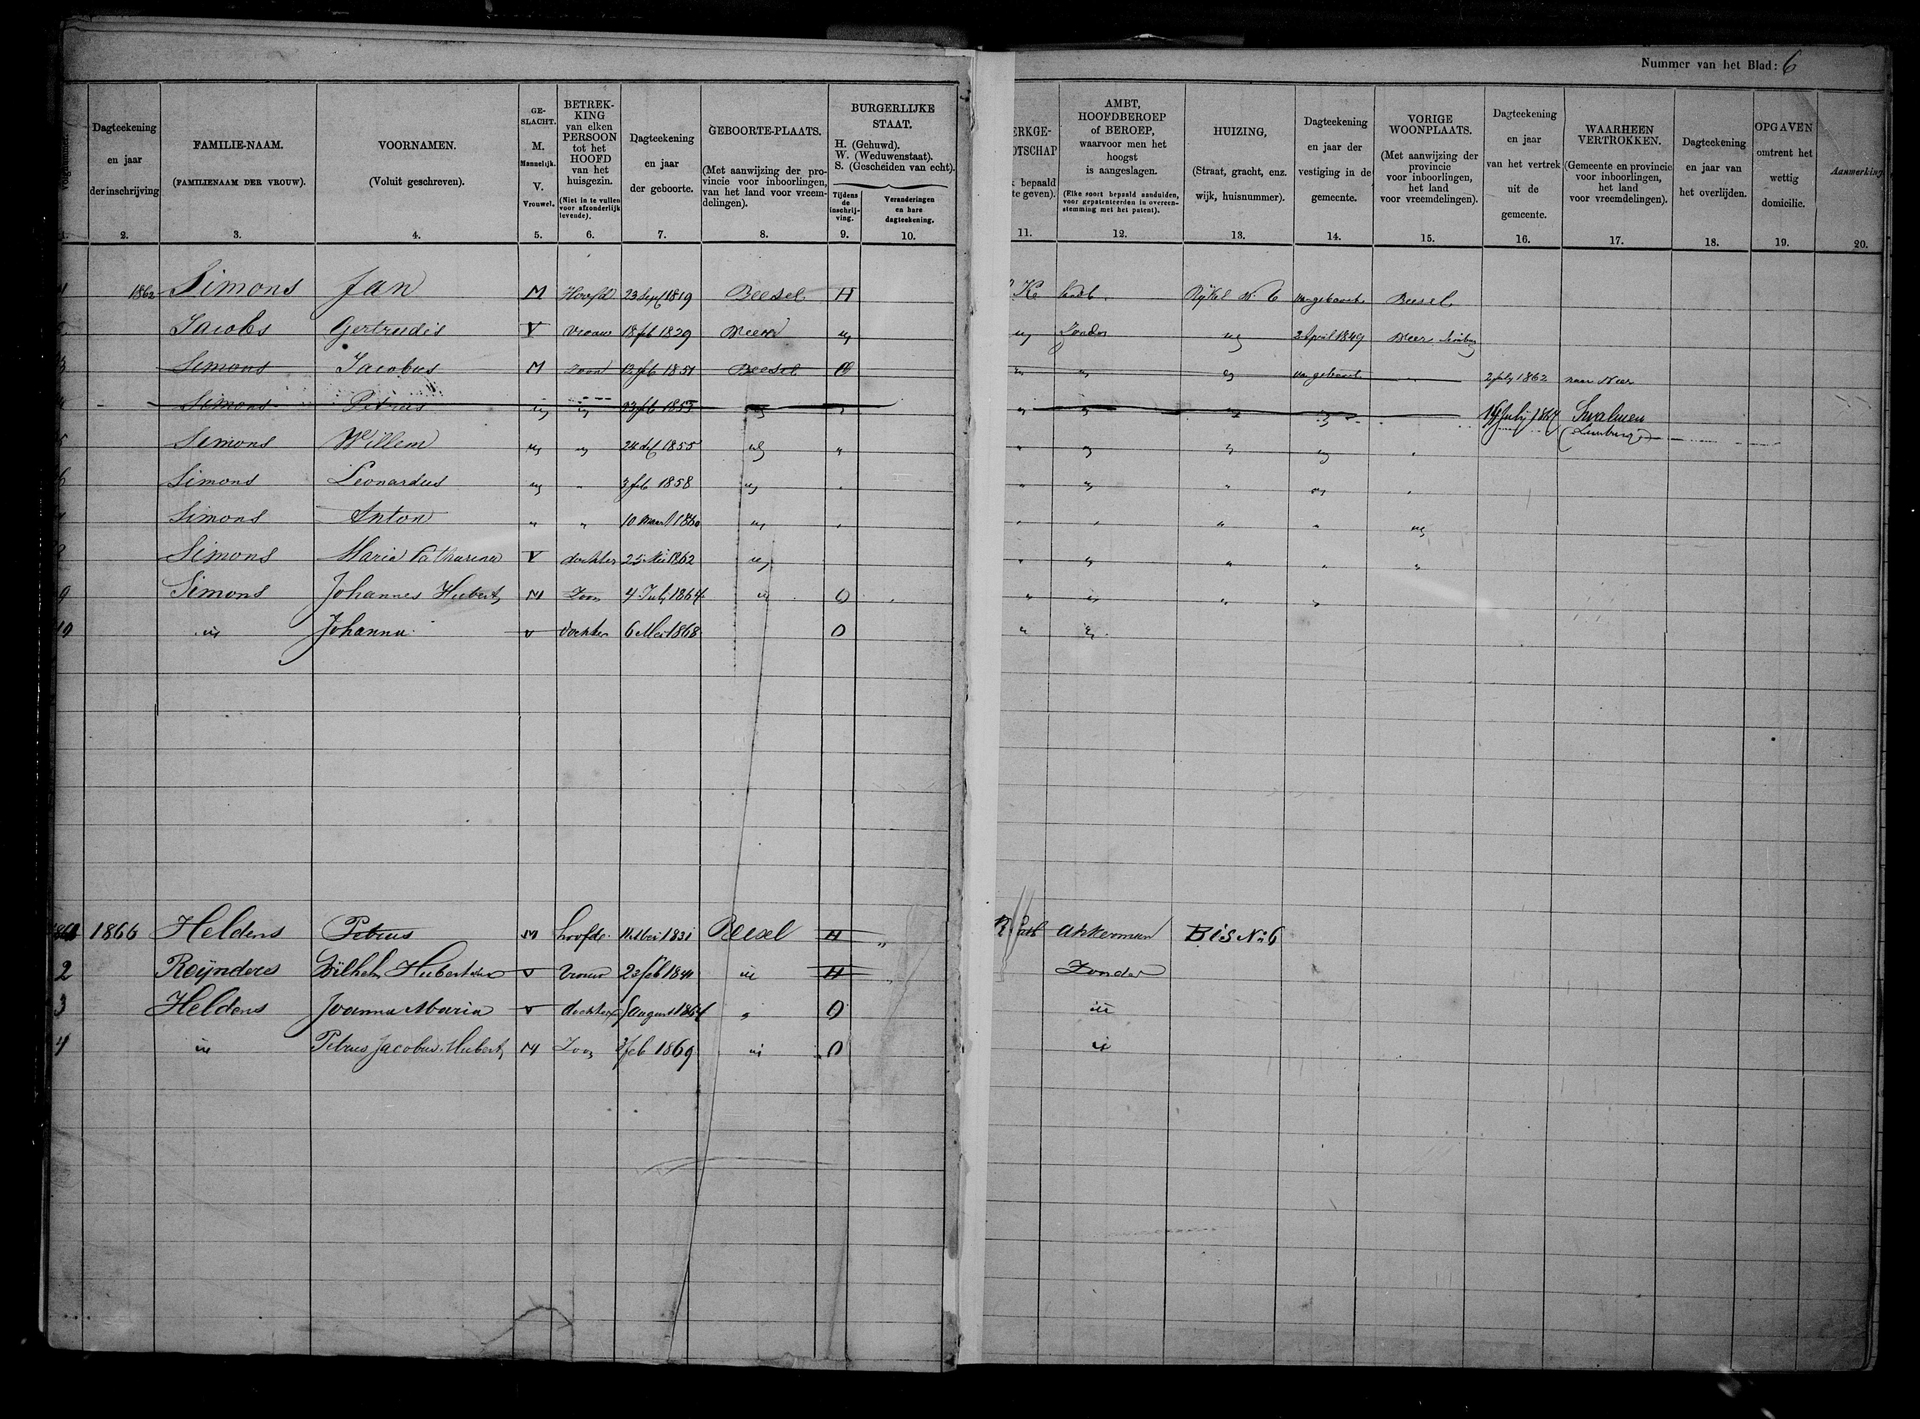 Nummer van het Blad: 6
Volgnummer.
Dagteekening en jaar der inschrijving
FAMILIE-NAAM. (FAMILIENAAM DER VROUW).
VOORNAMEN. (Voluit geschreven).
GE-SLACHT. M. Mannelijk. V. Vrouwel.
BETREK-KING van elken PERSOON tot het HOOFD van het huisgezin. (Niet in te vullen voor afzonderlijk levende).
Dagteekening en jaar der geboorte.
GEBOORTE-PLAATS. (Met aanwijzing der pro-vincie voor inboorlingen, van het land voor vreem-delingen).
BURGERLIJKE STAAT. H. (Gehuwd). W. (Weduwenstaat). S. (Gescheiden van echt).
Tijdens de inschrij-ving.
Veranderingen en hare dagteekening.
ERKGE-
OTSCHAP
bepaald
te geven).
AMBT, HOOFDBEROEP of BEROEP, waarvoor men het hoogst is aangeslagen. (Elke soort bepaald aanduiden, voor gepatenteerden in overeen-stemming met het patent).
HUIZING, (Straat, gracht, enz. wijk, huisnummer).
Dagteekening en jaar der vestiging in de gemeente.
VORIGE WOONPLAATS. (Met aanwijzing der provincie voor inboorlingen, het land voor vreemdelingen).
Dagteekening en jaar van het vertrek uit de gemeente.
WAARHEEN VERTROKKEN. (Gemeente en provincie voor inboorlingen, het land voor vreemdelingen).
Dagteekening en jaar van het overlijden.
OPGAVEN omtrent het wettig domicilie.
Aanmerking
1. 2. 3. 4. 5. 6. 7. 8. 9. 10. 11. 12. 13. 14. 15. 16. 17. 18. 19. 20.
1 1862 Simons Jan M Hoofd 23 Sept 1819 Beesel H Rijkel N. 6 Beesel
Jacobs Gertrudis V Vrouw 18 feb 1829 Neer " " Zonder " 2 April 1849 Neer
3 Simons Jacobus M Zoon 12 feb 1851 Beesel " " " 2 July 1862 naar Neer
Simons Petrus " " 23 feb 1853 " " " " " " 14 July 1864 Swalmen (Limburg)
5 Simons Willem " " 1855 " " " " " " "
6 Simons Leonardus " " 3 feb 1858 " " " " " " "
Simons Anton " " 10 Maart 1860 " " " " " " "
8 Simons Maria Catharina V dochter 25 Mei 1862 " " " " " "
9 Simons Johannes Hubert M Zoon 4 July 1864 " O " " " "
10 " Johanna V dochter 6 Mei 1868 O " "
1866 Heldens Petrus M hoofd 1831 Beesel H " Akkerman Bis No 6
2 Reijnders V Vrouw 23 feb " H Zonder
3 Heldens Joanna Maria V dochter august 1864 " O "
4 " Petrus Jacobus Hubert M Zoon feb 1869 " O "